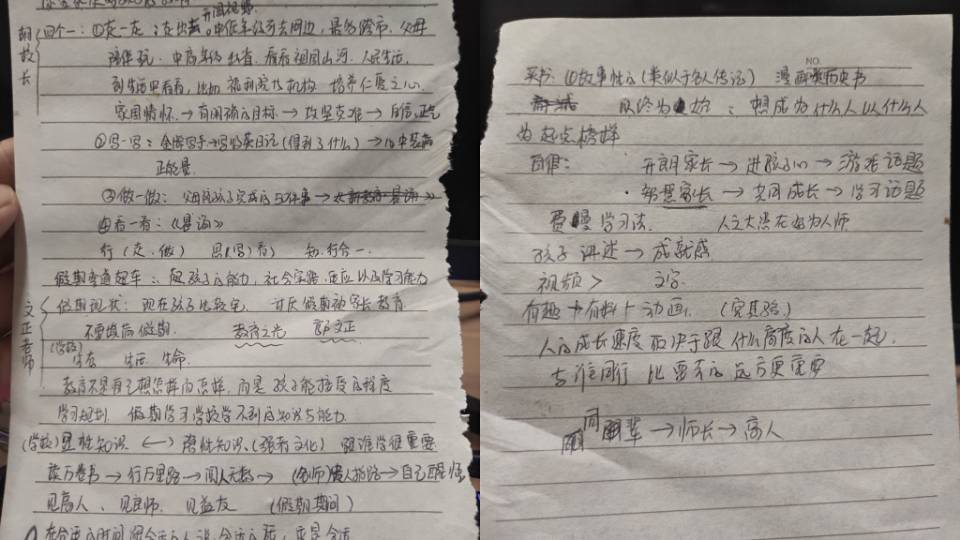 胡校长
四个一：①走一走：走出去 开阔视野。中低年级可去周边，最多跨市，父母
陪伴玩。中高年级出省，看看祖国山河、人民生活
到生活中看看，比如 福利院及机构 培养仁爱之心
家国情怀→有明确的目标→攻坚克难→自信、正气
②写一写：金牌写手→写好英日记(得到了什么)→
正能量
③做一做：父母陪孩子完成的 件事→
④看一看：《 》
行（走、做） 思（写、看） 知行合一
假期弯道超车：孩子的能力，社会实践、适应以及学习能力
文正老师
假期现状：现在孩子比较宅 讨厌假期被家长教育
不要填高假期 教育之光 文正
(学校)
生存 生活 生命
教育不是自己想怎样而怎样，而是孩子能接受的程度
学习规划 假期学习学校学不到的知识与能力
(学校)显性知识 ←→ 隐性知识、(强者文化) 跟谁学很重要
读万卷书→行万里路→阅人无数→(名师)贵人指路→自己醒悟
见高人、见良师、见益友 (假期期间)
在合适的时间 合适的人 说 合适的话，
NO.
买书：(1)故事性的(类似于名人传记) 漫画类历史书
以终为始：想成为什么人以什么人
为起点榜样
开朗家长→进孩子心→游戏话题
·智慧家长→共同成长→学习话题
费曼学习法 人之大患在好为人师
孩子讲述→成就感
视频> 文字
有趣+有料+动画 (宽其路)
人的成长速度取决于跟什么高度的人在一起，
与谁同行 比要去的远方更重要
同辈→师长→高人